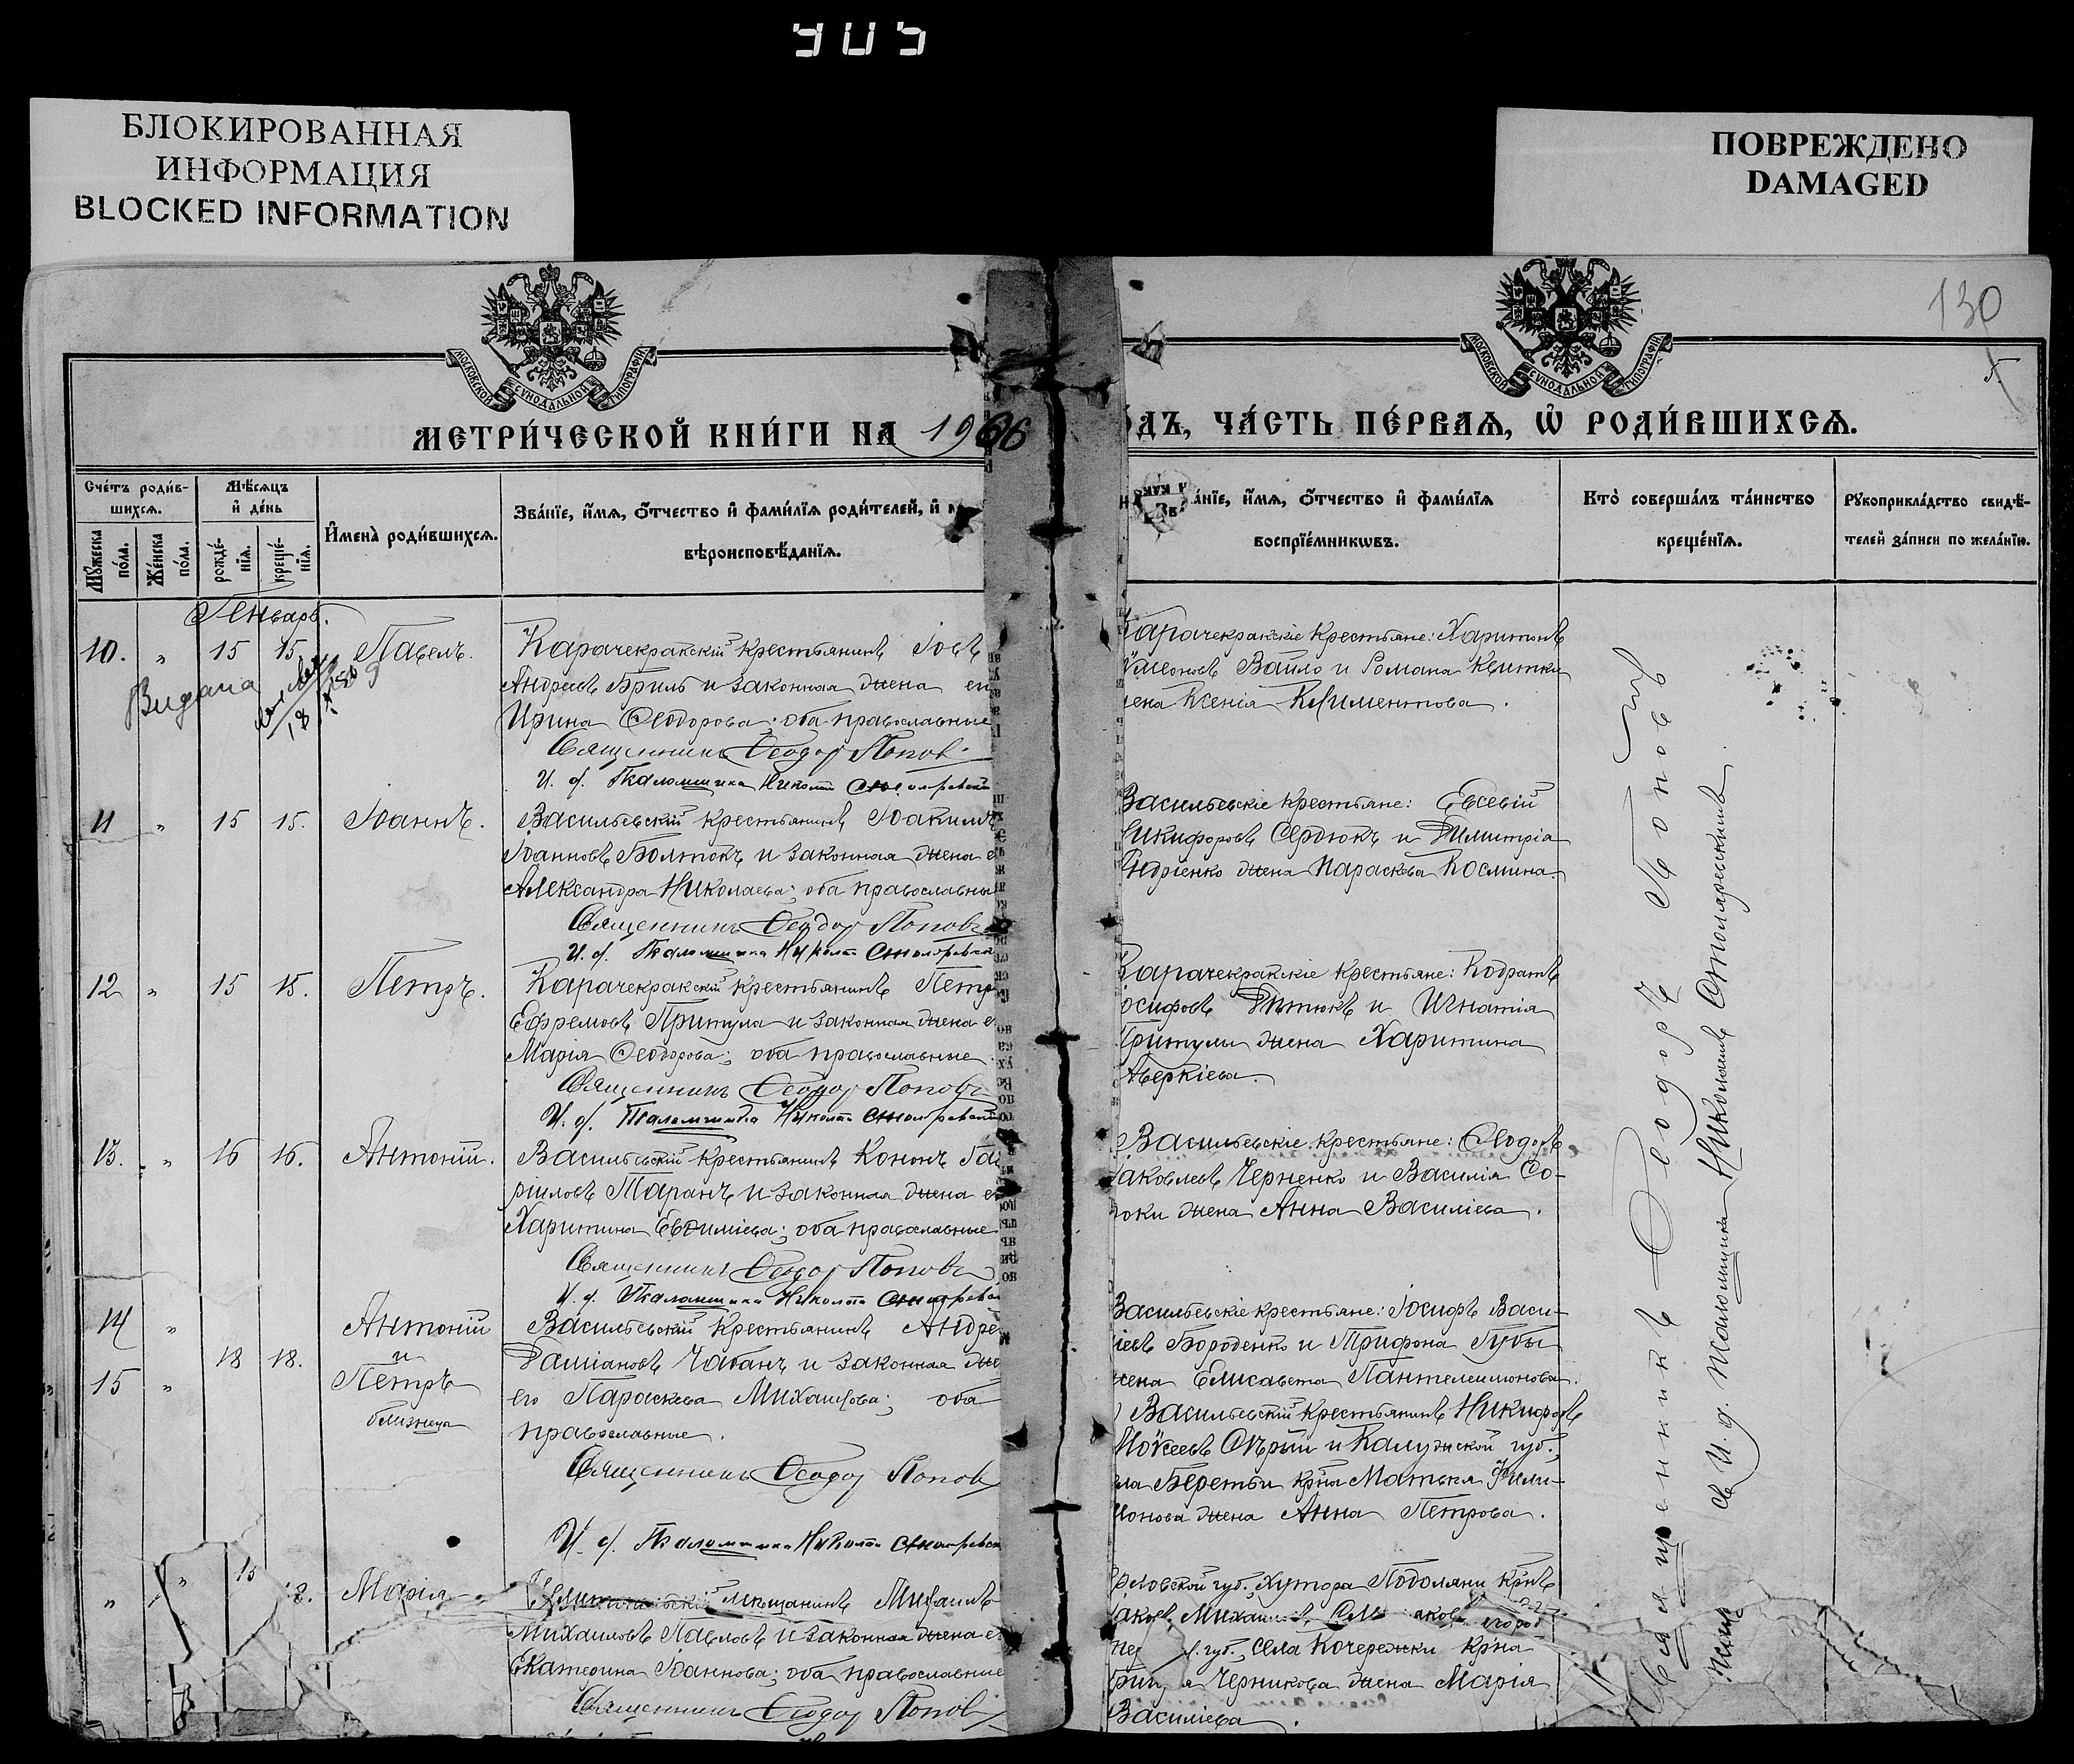 905
БЛОКИРОВАННАЯ
ИНФОРМАЦИЯ
BLOCKED INFORMATION
ПОВРЕЖДЕНО
DAMAGED
МОСКОВСКОЙ СУНОДАЛЬНОЙ ТИПОГРАФІИ
МОСКОВСКОЙ СУНОДАЛЬНОЙ ТИПОГРАФІИ
130
5
МЕТРИ́ЧЕСКОЙ КНИ́ГИ НА 1906
ДЪ, ЧА́СТЬ ПЕ́РВАѦ, Ѡ҆ РОДИ́ВШИХСѦ.
Сче́тъ роди́в-
шихсѧ.
Мꙋ́жеска
по́ла.
Же́нска
по́ла.
Мѣ́сѧцъ
и҆ де́нь
рожде́-
нїѧ.
креще́-
нїѧ.
И҆мена̀ роди́вшихсѧ.
Зва́нїе, и҆́мѧ, ѻ҆́тчество и҆ фами́лїѧ роди́телей, и҆
вѣроисповѣ́данїѧ.
а́нїе, и҆́мѧ, ѻ҆́тчество и҆ фами́лїѧ
воспрїе́мникѡвъ.
Кто̀ соверша́лъ та́инство
креще́нїѧ.
Рꙋкоприкла́дство свидѣ́-
телей за́писи по жела́нїю.
Генварь.
10. " 15 15. Павелъ.
Видана
18
Карачекракскій крестьянинъ Іовъ
Андреевъ Бриль и законная жена ея
Ирина Ѳеодорова; оба православные
Священникъ Ѳеодоръ Попов
И. д. Псаломщика Николай
Карачекракскіе крестьяне: Харитонъ
Симеоновъ Вайло и Романа Квитки
жена Ксенія Климентова.
11 " 15 15. Іоаннъ.
Васильевскій крестьянинъ Іоакимъ
Іоанновъ Болтокъ и законная жена е
Александра Николаева; оба православны
Священникъ Ѳеодоръ Поповъ
И. д. Псаломщика Николай
Васильевскіе крестьяне: Евсевій
Никифоровъ Сердюкъ и Димитрія
Андріенко жена Параскева Космина.
12 " 15 15. Петръ.
Карачекракскій крестьянинъ Петр
Ефремовъ Притула и законная жена е
Марія Ѳеодорова; оба православные
Священникъ Ѳеодоръ Поповъ
И. д. Псаломщика Николай
Карачекракскіе крестьяне: Кодратъ
осифовъ и Игнатія
Притулы жена Харитина
Аверкіева.
13. " 16 16. Антоній.
Васильевскій крестьянинъ Кононъ Гав
ріиловъ Таранъ и законная жена е
Харитина Евѳиміева; оба православные
Священникъ Ѳеодоръ Поповъ
И. д. Псаломщика Николай
Васильевскіе крестьяне: Ѳеодоръ
Іаковлевъ Черненко и Василія Со-
роки жена Анна Василіева.
14 " Антоній
18 18. и
15 " Петръ
близнецы
Васильевскій крестьянинъ Андре
Даміановъ Чабанъ и законная же
его Параскева Михаилова; оба
православные.
Священникъ Ѳеодоръ Попов
И. д. Псаломщика Николай
Васильевскіе крестьяне: Іосифъ Васи-
ліевъ Бороденко и Трифона Губы
жена Елисавета Пантелеимонова.
Васильевскій крестьянинъ Никифоръ
Моѵсеевъ Сѣрый и Калужской губ.,
ла Беретьи кр'на Матѳія Фили-
монова жена Анна Петрова.
" " 15 18. Марія
мѣщанинъ Михаилъ
Михаиловъ Павловъ и законная жена е
Екатерина Іоаннова; оба православные
Священникъ Ѳеодоръ Попов
губ. хутора Подоляни кр'нъ
Іаков. Михаил
губ., села Кочережки кр'на
Черникова жена Марія
Василіева.
Священникъ Ѳеодоръ Поповъ
съ И. д. псаломщика Николаемъ Столяревскимъ